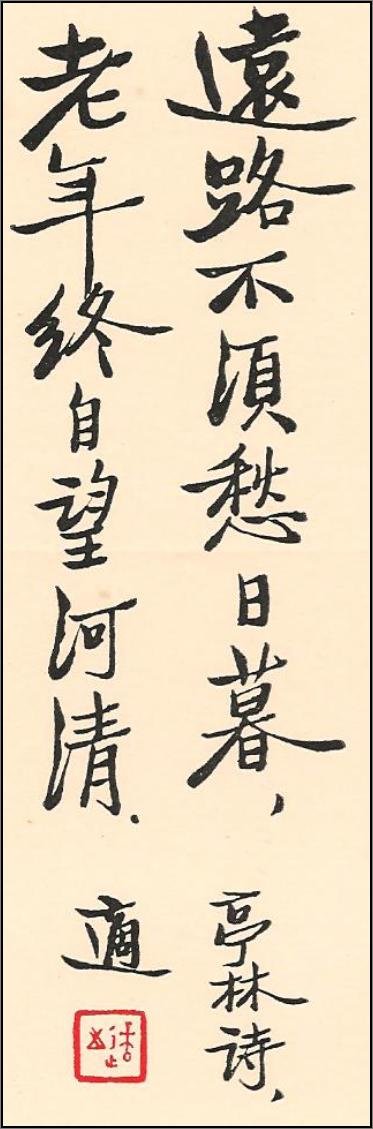 遠路不須愁日暮，
亭林诗，
老年終自望河清．
適